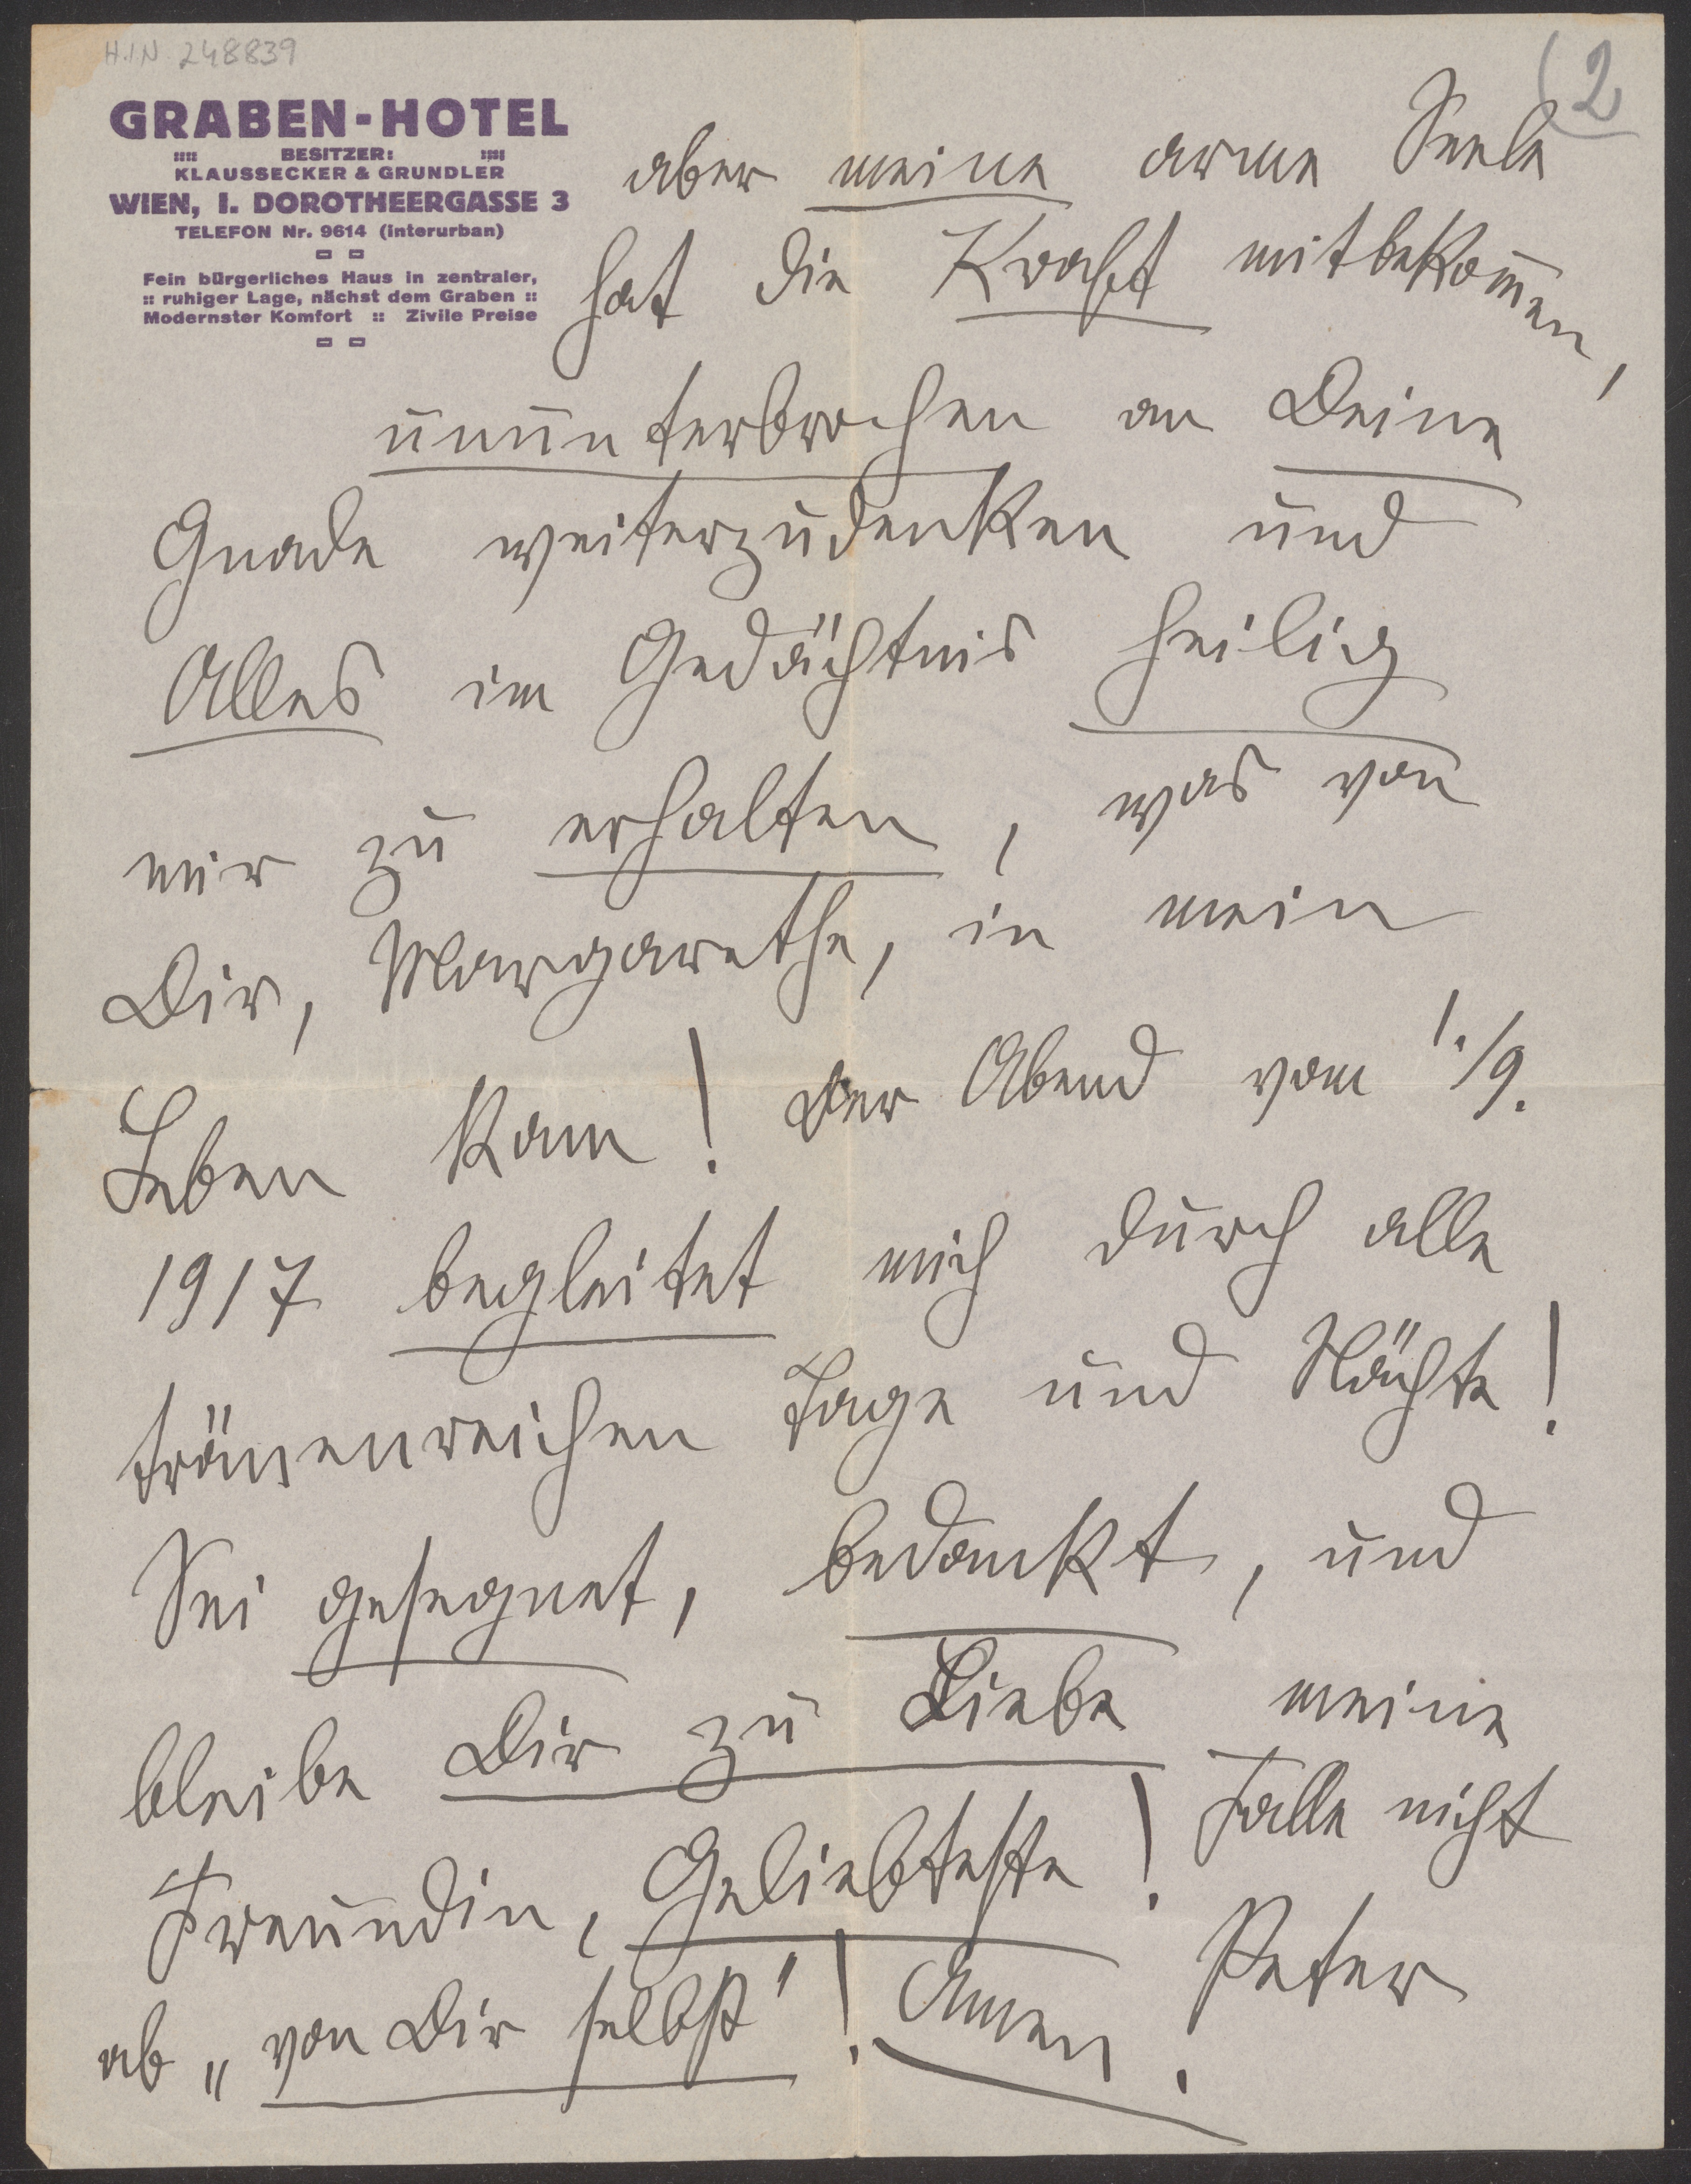 H.I.N. 248839
(2
GRABEN-HOTEL
:::: BESITZER: ::::
KLAUSSECKER & GRUNDLER
WIEN, I. DOROTHEERGASSE 3
TELEFON Nr. 9614 (interurban)
Fein bürgerliches Haus in zentraler,
:: ruhiger Lage, nächst dem Graben ::
Modernster Komfort :: Zivile Preise
aber meine arme Seele
hat die Kraft mitbekom̅en,
ununterbrochen an Deine
Gnade weiterzudenken und
Alles im Gedächtnis heilig
mir zu erhalten, was von
Dir, Margarethe, in mein
Leben kam! Der Abend vom 1./9.
1917 begleitet mich durch alle
tränenreichen Tage und Nächte!
Sei gesegnet, bedankt, und
bleibe Dir zu Liebe meine
Freundin, Geliebteste! Falle nicht
ab „von Dir selbst"! Amen.
Peter